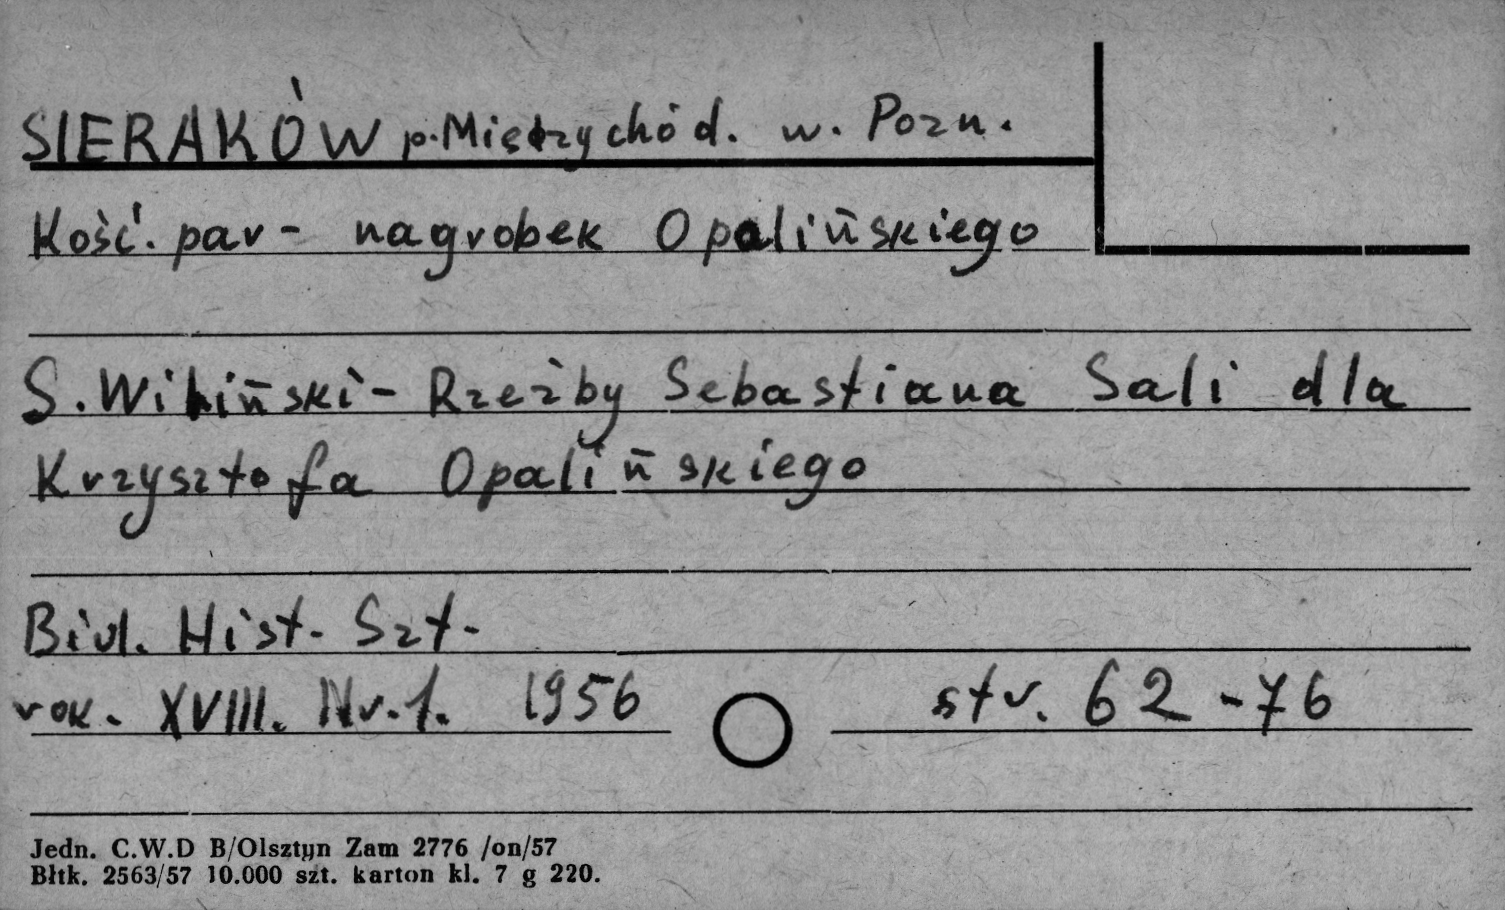 SIERAKÓW p. Międzychód. w. Pozn.
Kość. par - nagrobek Opalińskiego
S. Wiliński - Rzeźby Sebastiana Sali dla
Krzysztofa Opalińskiego
Biul. Hist. Szt.
rok. XVIII. Nr. 1. 1956 str. 62-76
Jedn. C.W.D B/Olsztyn Zam 2776 /on/57
Błtk. 2563/57 10.000 szt. karton kl. 7 g 220.